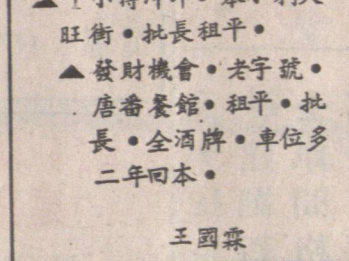 旺街•批長租平•
▲發財機會•老字號•
唐番餐館•租平•批
長•全酒牌•車位多
二年回本•
王國霖